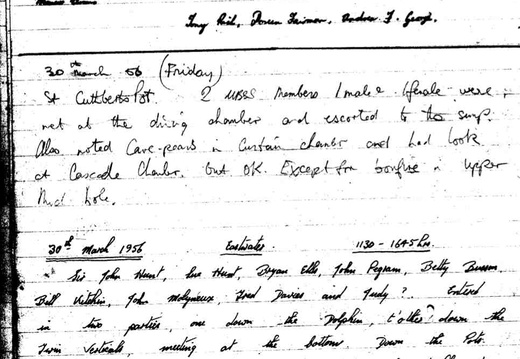 Tony Rich, Doreen Fairman, Andrew F. George.
30th March 56 (Friday)
St Cuthberts Pot. 2 UBSS members 1 male 1 female were
met at the diving chamber and escorted to the sump.
Also noted Cave-pearls in Curtain chamber and had look
at Cascade Chamber, but OK. Except for bonfire in Upper
Mud hole.
30th March 1956 Eastwater 1130 - 1645 hrs.
Sir John Hunt, Hunt, Bryan Ellis, John Pegram, Betty
Bill , John Molyneux, Fred Davies and Judy? Entered
in two parties, one down the Dolphin, t'other down the
Twin Verticals, meeting at the bottom Down the Pots.